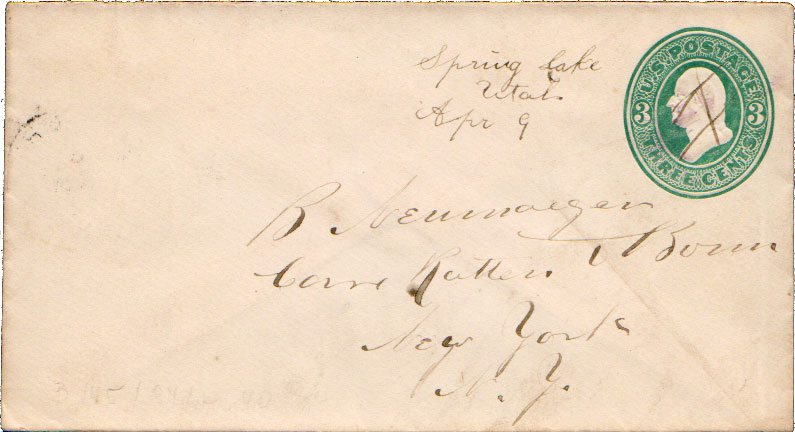 Spring Lake
Utah
Apr 9
U.S. POSTAGE
3 3
THREE CENTS
B Neumoegen
Care Rutten & Bonn
New York
N.Y.